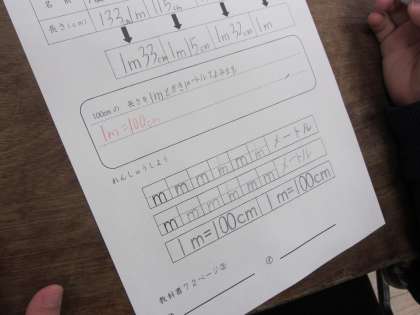 名 前
長さ(cm) 133cm 1m 115cm
1m33cm 1m15cm 1m32cm 1m
100cmの 長さを1mとかき1メートルとよみます。
1m=100cm
れんしゅうしよう
m m m m m m メートル
m m m m m m メートル
1m=100cm 1m=100cm
教科書72ページ③
④